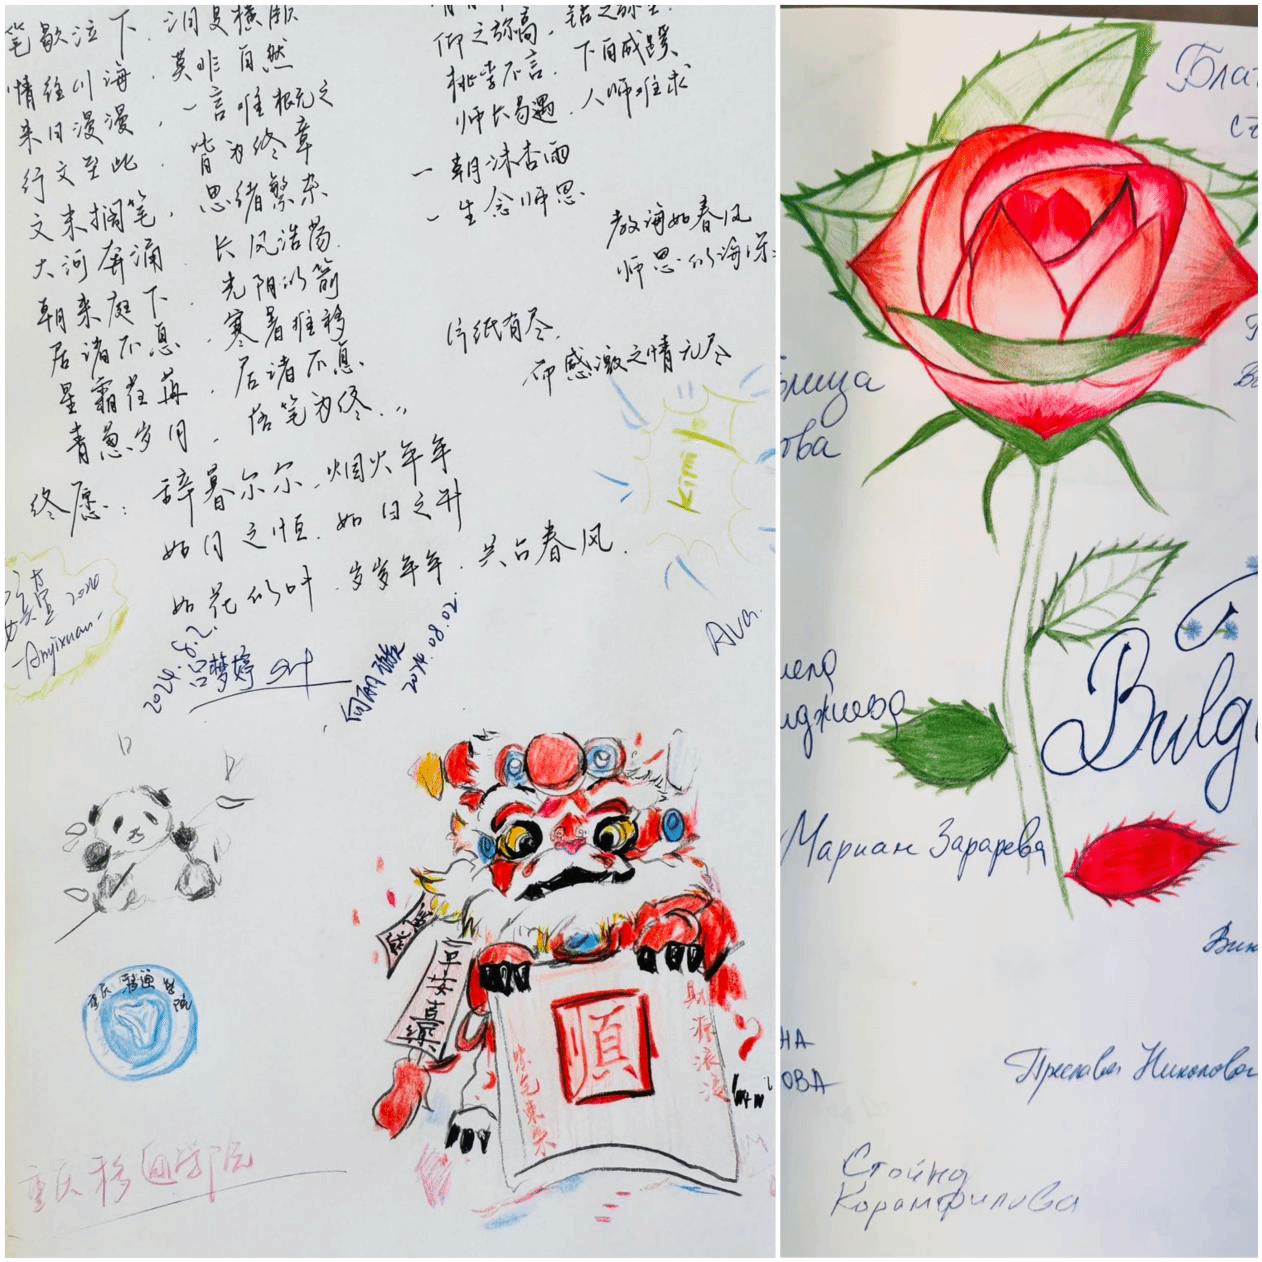 笔歇泣下
情经川海，莫非自然
来日漫漫，一言难概之
行文至此，皆为终章
文未搁笔，思绪繁杂
大河奔涌，长风浩荡
朝来庭下，光阴似箭
居诸不息，寒暑推移
星霜荏苒，居诸不息
青葱岁月，搭笔为终
终愿：辞暮尔尔，烟火年年
如月之恒，如日之升
如花似叶，岁岁年年，共占春风
仰之弥高，钻之弥坚
桃李不言，下自成蹊
师长易遇，人师难求
一朝沐杏雨
一生念师恩
教诲如春风
师恩似海深
片纸有尽
而感激之情无尽
Kimi
2024
Anyixuan
2024.8.2.
吕梦婷
2024.08.02.
Ava.
重庆移通学院
平安喜乐
順
財源滚滚
紫气東来
重庆移通学院
Благ
Мариан
Bulg
Преслава Николова
Стойна
Карамфилова